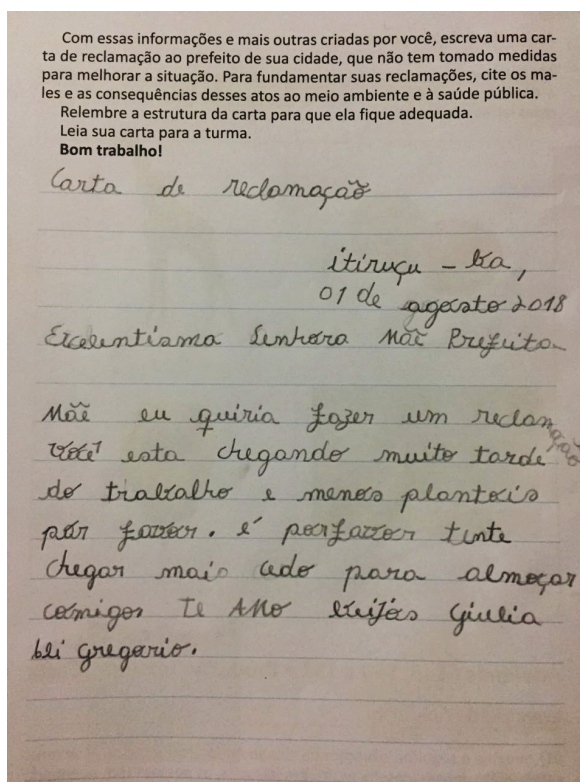 Com essas informações e mais outras criadas por você, escreva uma car-
ta de reclamação ao prefeito de sua cidade, que não tem tomado medidas
para melhorar a situação. Para fundamentar suas reclamações, cite os ma-
les e as consequências desses atos ao meio ambiente e à saúde pública.
Relembre a estrutura da carta para que ela fique adequada.
Leia sua carta para a turma.
Bom trabalho!
Carta de reclamação
itiruçu - Ba,
01 de agosto 2018
Excelentisma Senhora Mãe Prefeita
Mãe eu quiria fazer um reclamação
você esta chegando muito tarde
do trabalho e menos plantois
por favor. é por favor tente
chegar mais cedo para almoçar
comigo, TE AMO beijos Giulia
gregorio.